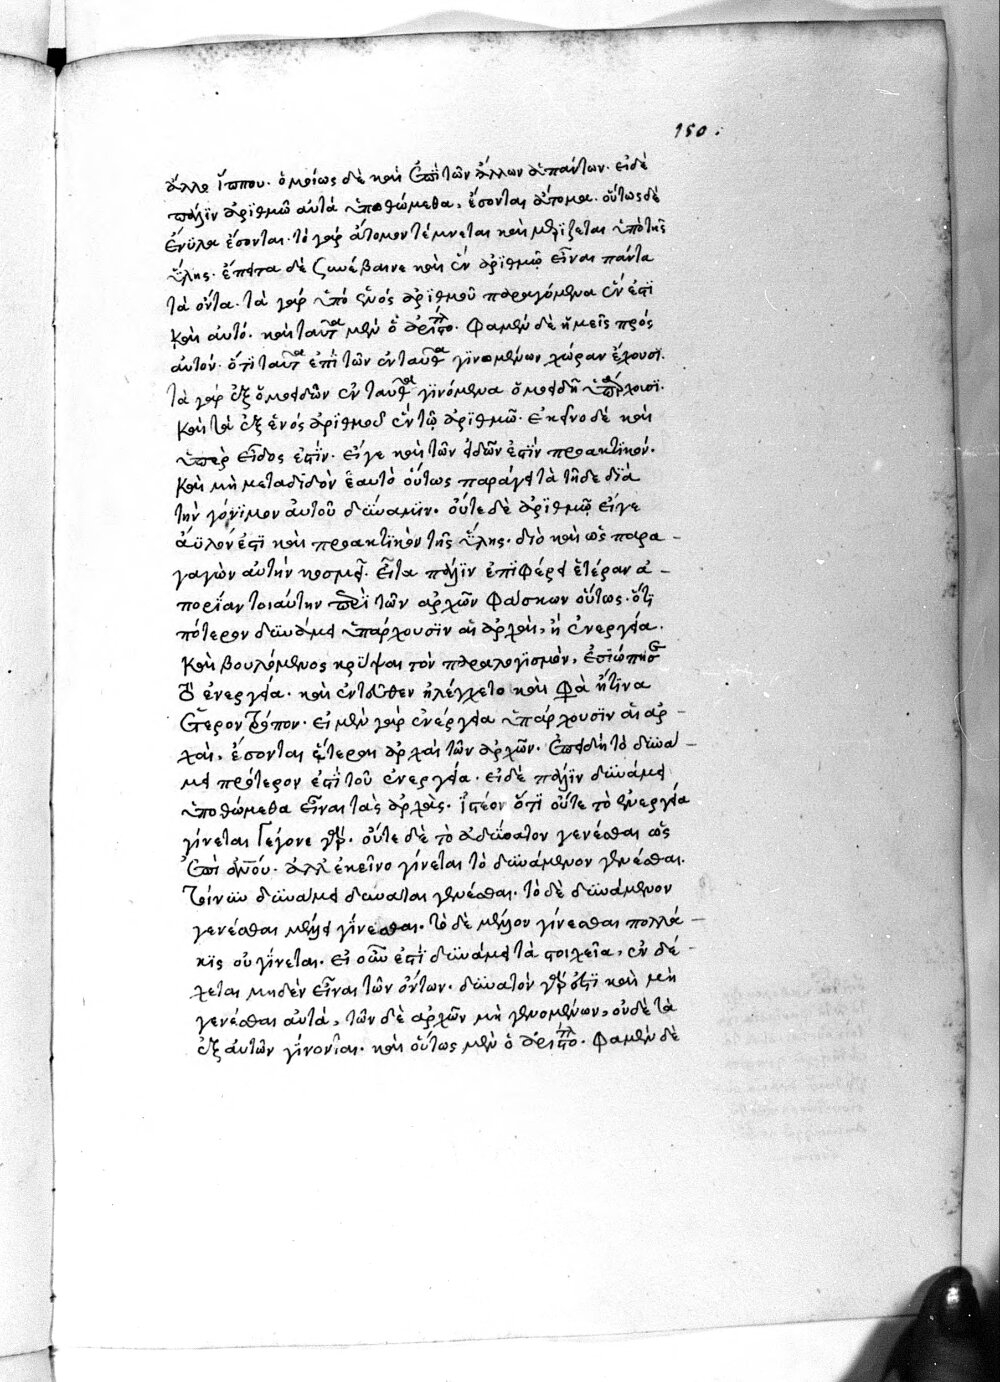 150.
ἄλλο ἵππου. ὁμοίως δὲ καὶ ἐπὶ τῶν ἄλλων ἁπάντων. εἰ δὲ
πάλϊν ἀρϊθμῶ αὐτὰ ὑποθώμεθα, ἔσονται ἄτομα. οὕτως δὲ
ἔνϋλα ἔσονται. τὸ γὰρ ἄτομον τέμνεται καὶ μερίζεται ὑπὸ τῆς
ὕλης. ἔπειτα δὲ συνέβαινε καὶ ἓν ἀρϊθμῷ εἶναι πάντα
τὰ ὄντα. τὰ γὰρ ὑπὸ ἑνὸς ἀρϊθμοῦ παραγόμενα ἕν ἐστϊ
καὶ αὐτό. καὶ ταῦτα μὲν ὁ ἀριστο. φαμὲν δὲ ἡμεῖς πρὸς
αὐτόν. ὅτι ταῦτα ἐπὶ τῶν ἐνταῦθα γϊνομένων χώραν ἔχουσι.
τὰ γὰρ ἐξ ὁμοειδῶν ἐνταῦθα γϊνόμενα ὁμοειδῆ ὑπάρχουσϊ.
καὶ τὰ ἐξ ἑνὸς ἀρϊθμοῦ ἓν τῷ ἀρϊθμῶ. ἐκεῖνο δὲ καὶ
ὑπὲρ εἶδος ἐστϊν. εἴγε καὶ τῶν εἰδῶν ἐστϊν πρακτϊκόν.
καὶ μὴ μεταδϊδὸν ἑαυτὸ οὕτως παράγει τὰ τῆδε δϊὰ
τὴν γόνϊμον αὐτοῦ δύναμϊν. οὔτε δὲ ἀρϊθμῶ εἴγε
ἄϋλόν ἐστϊ καὶ πρακτϊκὸν τῆς ὕλης. διὸ καὶ ὡς παρα-
γαγὼν αὐτὴν κοσμεῖ. εἶτα πάλϊν ἐπϊφέρει ἑτέραν ἀ-
πορΐαν τοιαύτην περὶ τῶν ἀρχῶν φάσκων οὕτως. ὅτϊ
πότερον δυνάμει ὑπάρχουσϊν αἱ ἀρχαὶ, ἢ ἐνεργεία.
καὶ βουλόμενος κρύψαι τὸν παραλογϊσμὸν, ἐσϊώπησε
τὸ ἐνεργεία. καὶ ἐντεῦθεν ἠλέγχετο καὶ
ἕτερον τρόπον. εἰ μὲν γὰρ ἐνέργεία ὑπάρχουσϊν αἱ ἀρ-
χαὶ, ἔσονται ἕτεραι ἀρχαὶ τῶν ἀρχῶν. ἐπειδὴ τὸ δυνά-
μει πρότερον ἐστὶ τοῦ ἐνεργεία. εἰ δὲ πάλϊν δυνάμει
ὑποθώμεθα εἶναι τὰς ἀρχὰς. ἰστέον ὅτϊ οὔτε τὸ ἐνεργεία
γίνεται γέγονε γάρ. οὔτε δὲ τὸ ἀδύνατον γενέσθαι ὡς
ἀλλ' ἐκεῖνο γίνεται τὸ δυνάμενον γενέσθαι.
τοίνυν δυνάμει δύναται γενέσθαι. τὸ δὲ δυνάμενον
γενέσθαι μέλλει γίνεσθαι. τὸ δὲ μέλλον γίνεσθαι πολλά-
κϊς οὐ γΐνεται. εἰ οὖν ἐστϊ δυνάμει τὰ στοιχεῖα, ἐνδέ-
χεται μηδὲν εἶναι τῶν ὄντων. δυνατὸν γάρ ἐστϊ καὶ μὴ
γενέσθαι αὐτά, τῶν δὲ ἀρχῶν μὴ γενομένων, οὐδὲ τὰ
ἐξ αὐτῶν γΐνονται. καὶ οὕτως μὲν ὁ ἀριστο. φαμὲν δὲ